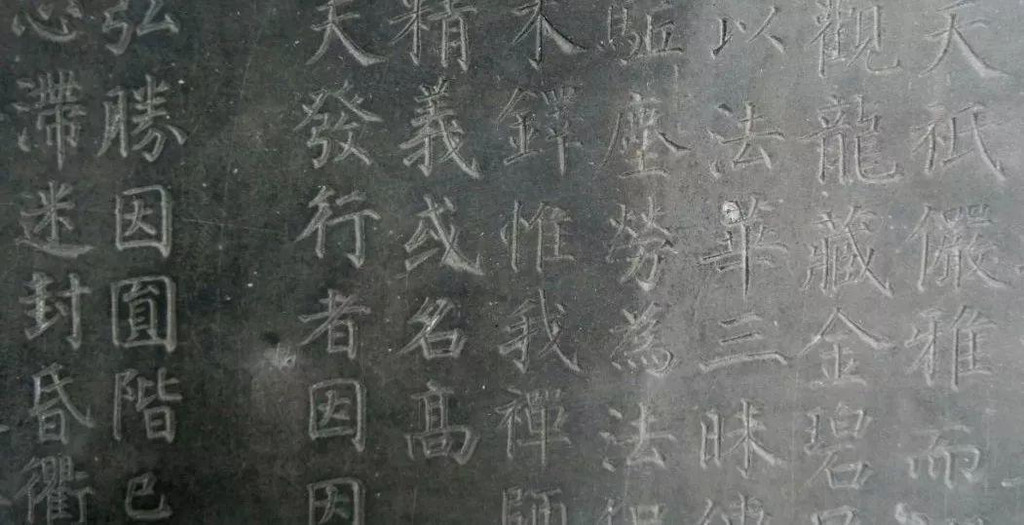 天祇儼雅而
觀龍藏金碧
以法華三昧傳
驅塵勞為法侶
木鐸惟我禪師
精義或名高
夫發行者因因
弘勝因圓階已
心滯迷封昏衢